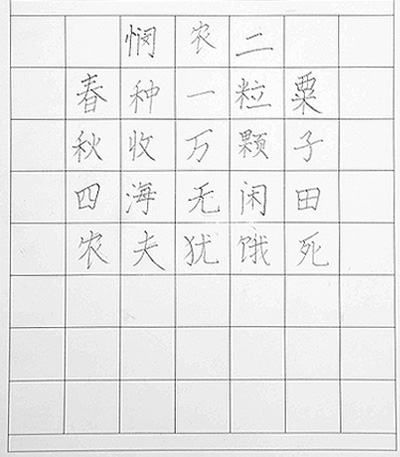 悯农二
春种一粒粟
秋收万颗子
四海无闲田
农夫犹饿死